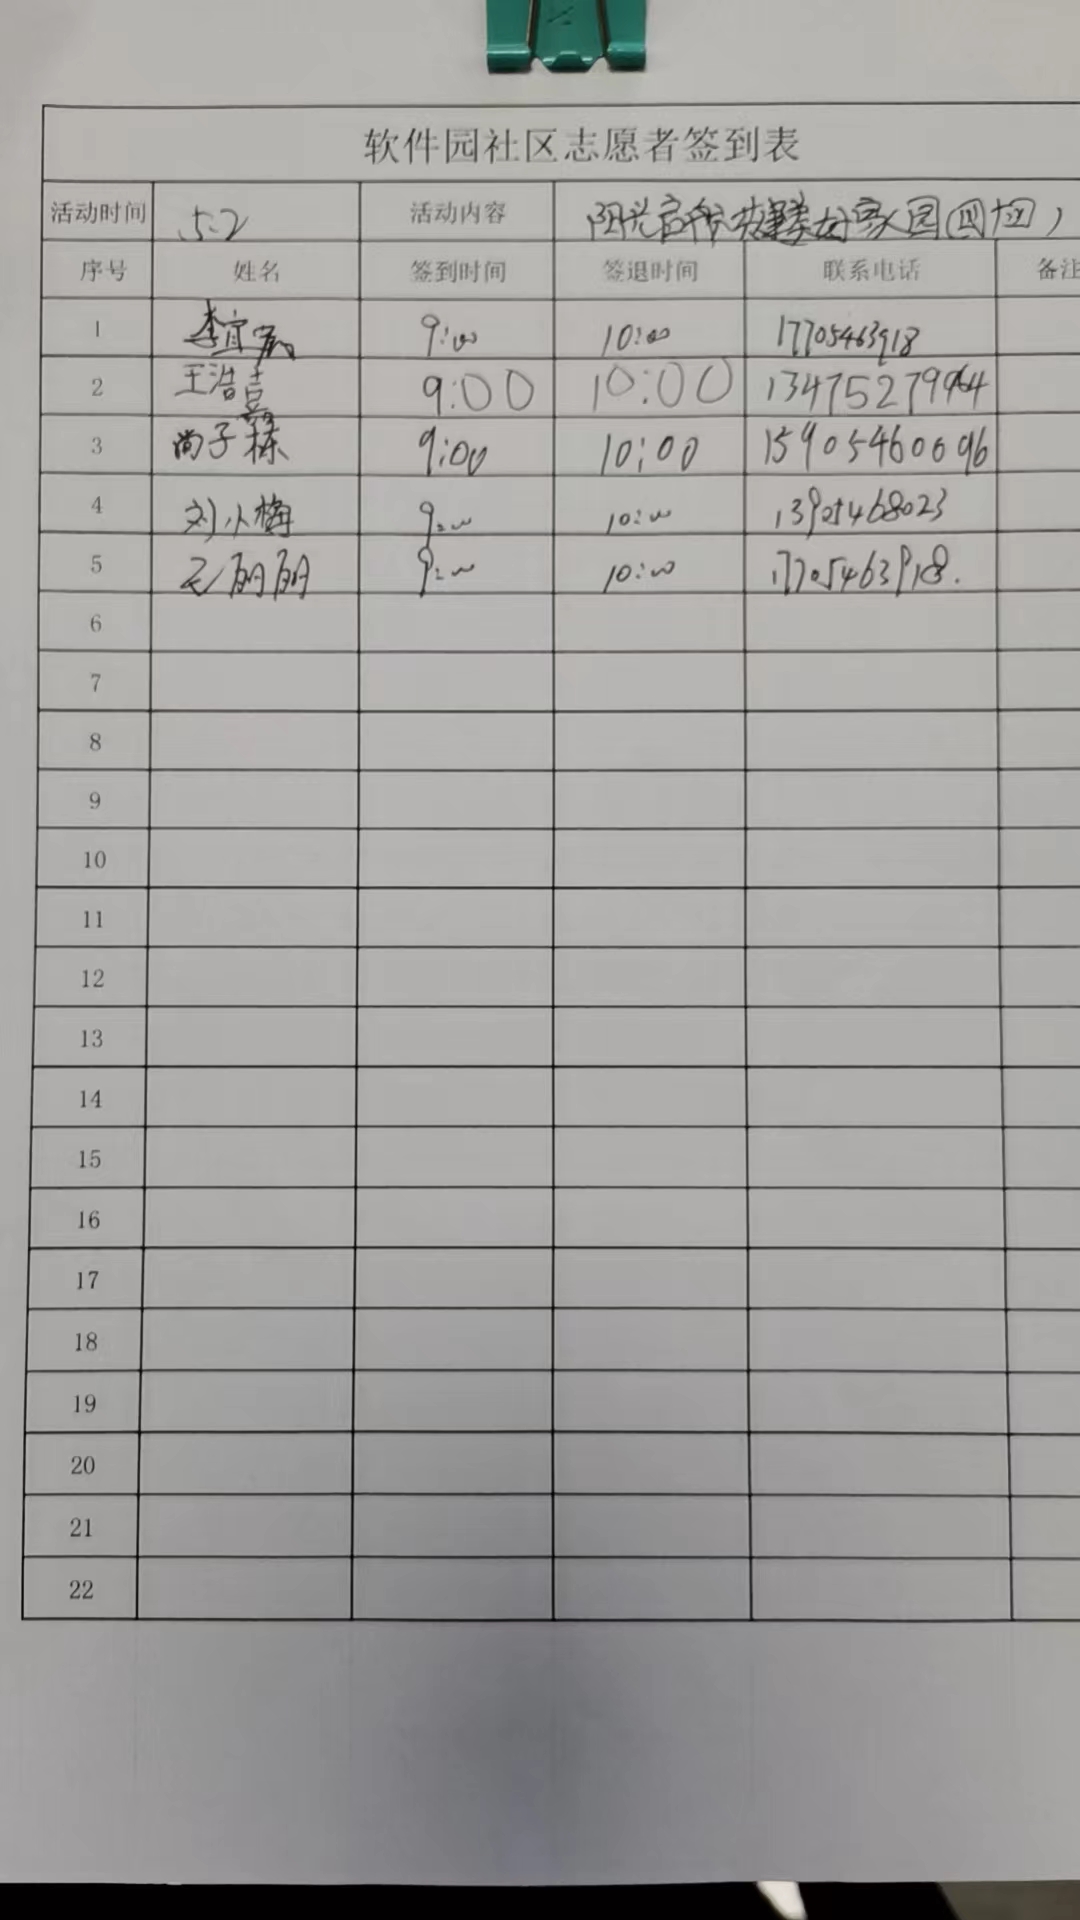 软件园社区志愿者签到表
活动时间 5.2 活动内容 阳光启航 共建美好家园(四十四)
序号 姓名 签到时间 签退时间 联系电话 备注
1 李宜宸 9:00 10:00 17705463918
2 王浩嘉 9:00 10:00 13475279964
3 尚子栋 9:00 10:00 15905460096
4 刘小梅 9:00 10:00 13905468023
5 王丽丽 9:00 10:00 17705463918.
6
7
8
9
10
11
12
13
14
15
16
17
18
19
20
21
22